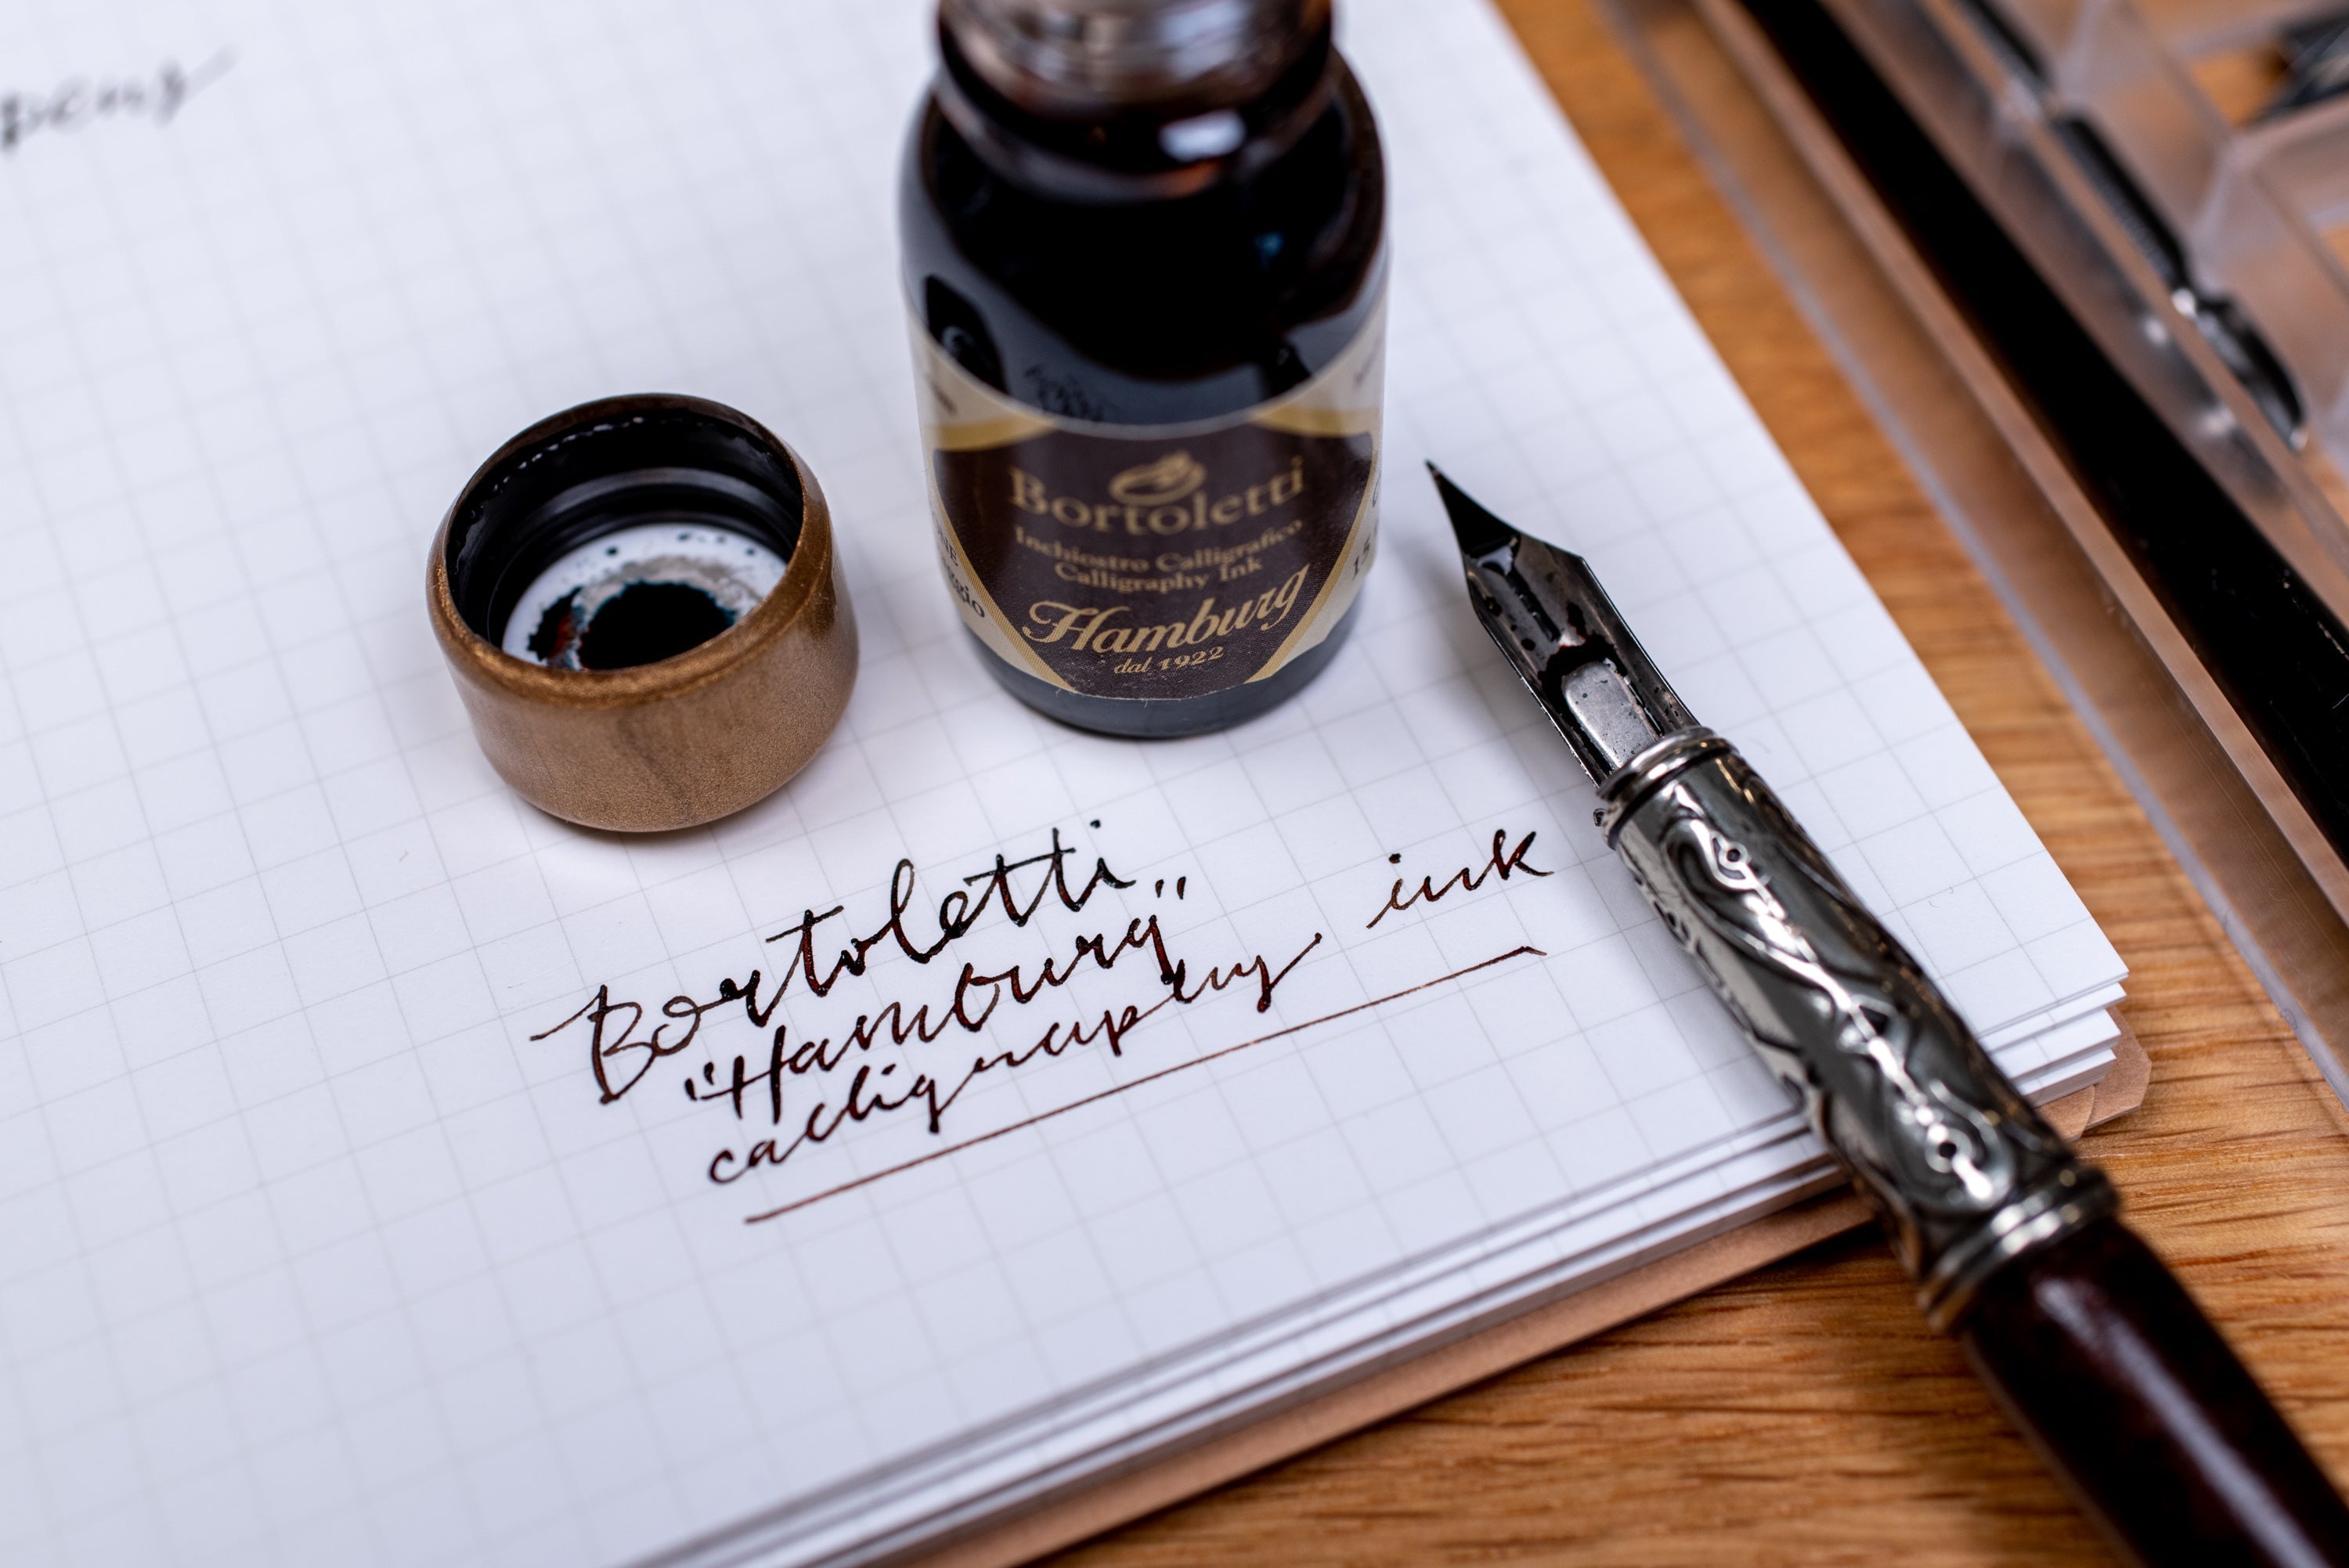 pens
Bortoletti
Inchiostro Calligrafico
Calligraphy Ink
Hamburg
dal 1922
Bortoletti
"Hamburg"
calligraphy ink